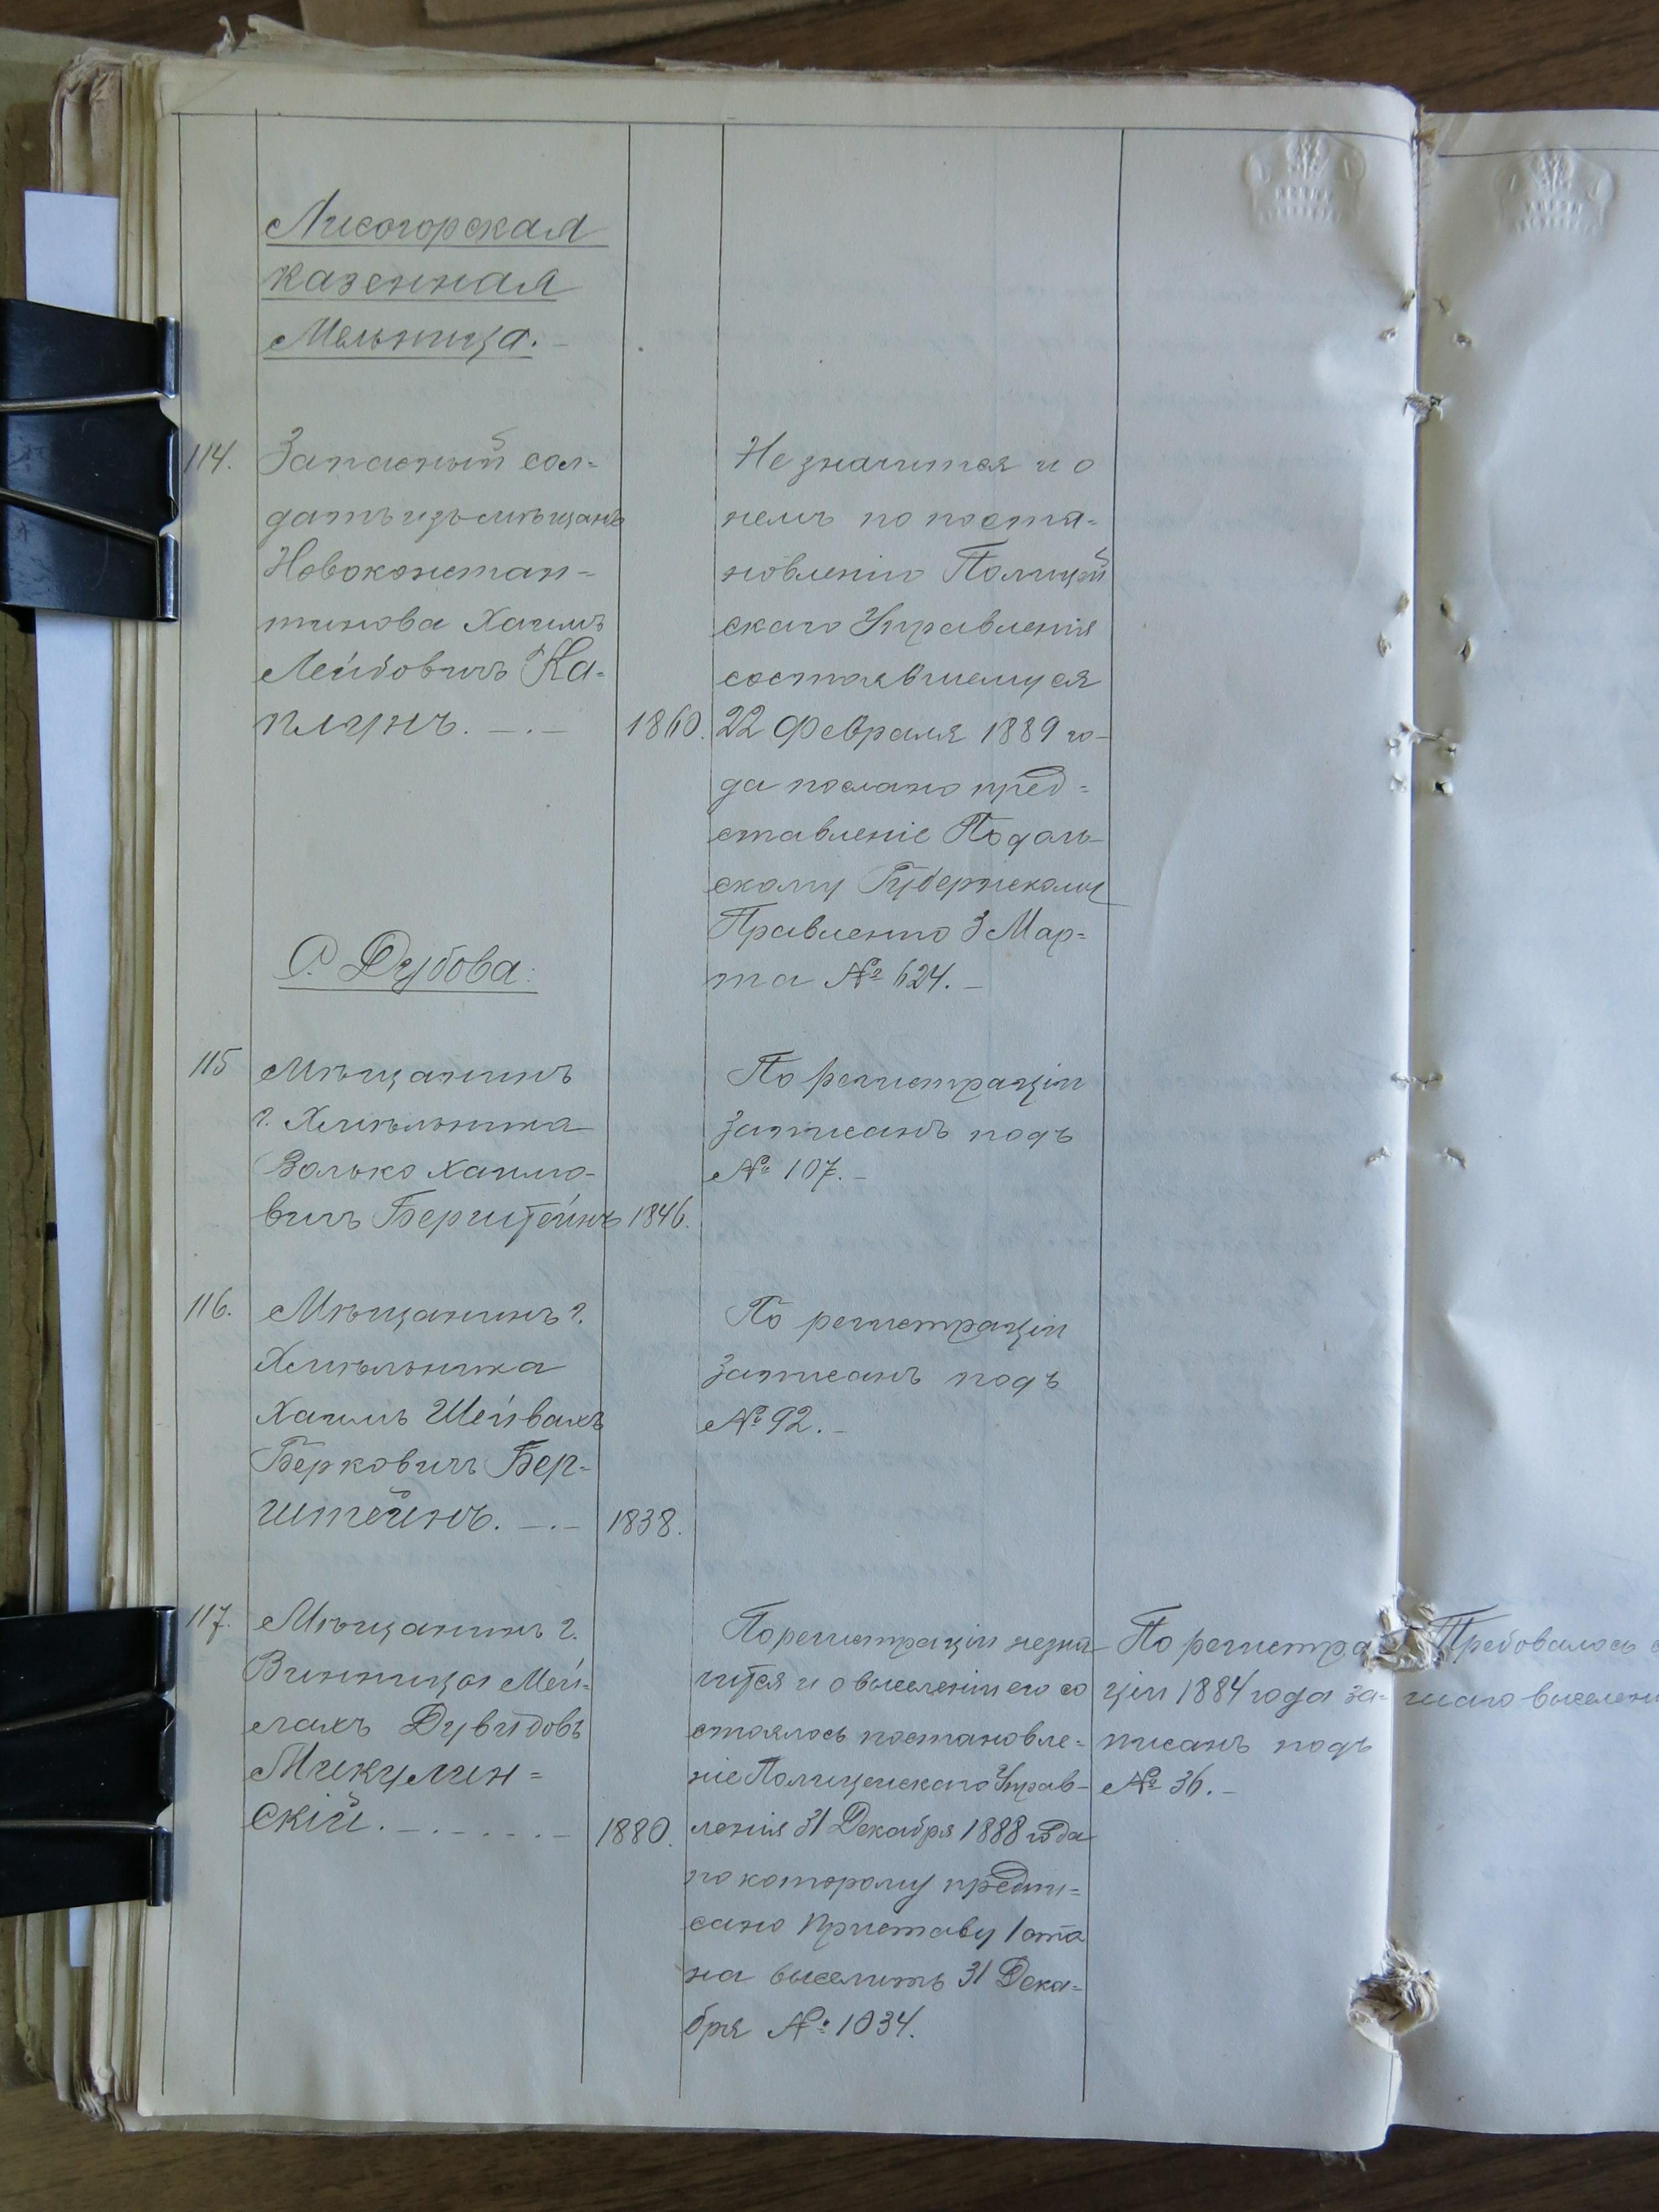 Лисогорская
казенная
Мельница. -
114.
Запасный сол=
датъ изъ мѣщанъ
Новоконстан=
тинова Хаимъ
Лейбовичъ Ка-
планъ. -.-
1860.
Не значится и о
немъ по поста=
новленію Полицей
скаго Управленія
состоявшемуся
22 Февраля 1889 го-
да послано пред=
ставленіе Подоль-
скому Губернскому
Правленію 3 Мар=
та № 624. -
С. Дубова.
115
Мѣщанинъ
г. Хмѣльника
Волько Хаимо-
вичъ Берштейнъ
1846.
По регистраціи
записанъ подъ
№ 107. -
116.
Мѣщанинъ г.
Хмѣльника
Хаимъ Шейвахъ
Берковичъ Бер-
штейнъ. -.-
1838.
По регистраціи
записанъ подъ
№ 92. -
117.
Мѣщанинъ г.
Винницы Мей-
лахъ Дувидовъ
Микулин=
скій. -.-.-.-
1880.
По регистраціи незна
чится и о выселеніи его со
стоялось постановле=
ніе Полицейскаго Управ-
ленія 31 Декабря 1888 года
по которому предпи=
сано Приставу 1 ста
на выселить 31 Дека=
бря № 1034.
По регистра
ціи 1884 года за=
писанъ подъ
№ 36. -
Требовалось
выселені